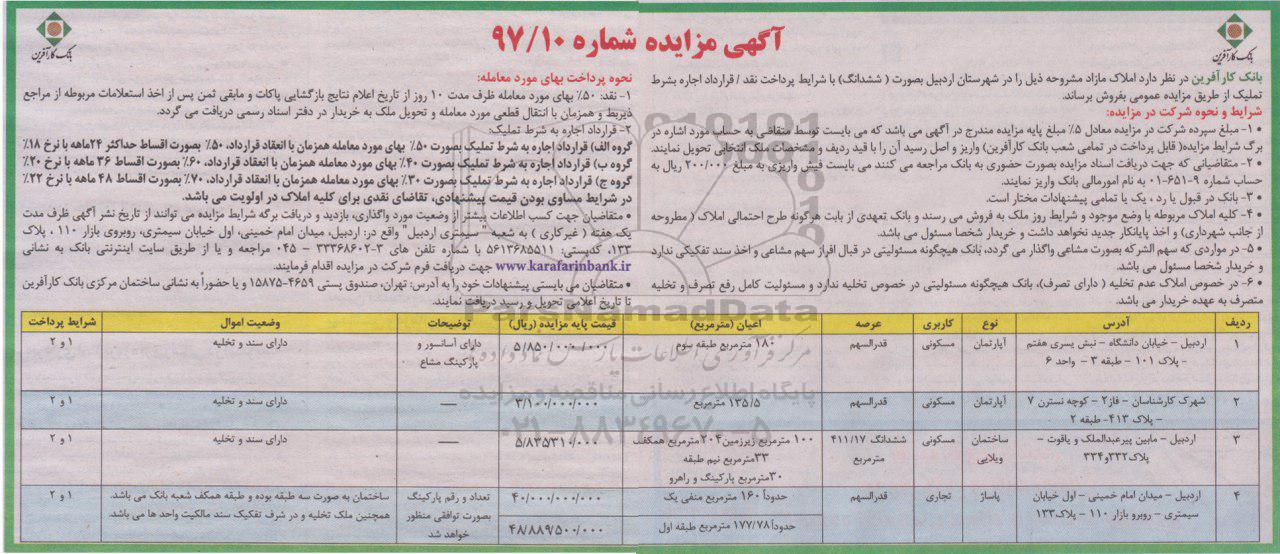 آگهی مزایده شماره ۹۷/۱۰
بانک کارآفرین
بانک کارآفرین
بانک کارآفرین در نظر دارد املاک مازاد مشروحه ذیل را در شهرستان اردبیل بصورت ( ششدانگ) با شرایط پرداخت نقد / قرارداد اجاره بشرط
تملیک از طریق مزایده عمومی بفروش برساند.
شرایط و نحوه شرکت در مزایده:
• ۱- مبلغ سپرده شرکت در مزایده معادل ۵٪ مبلغ پایه مزایده مندرج در آگهی می باشد که می بایست توسط متقاضی به حساب مورد اشاره در
برگ شرایط مزایده( قابل پرداخت در تمامی شعب بانک کارآفرین) واریز و اصل رسید آن را با قید ردیف و مشخصات ملک انتخابی تحویل نمایند.
• ۲- متقاضیانی که جهت دریافت اسناد مزایده بصورت حضوری به بانک مراجعه می کنند می بایست فیش واریزی به مبلغ ۲۰۰/۰۰۰ ریال به
حساب شماره ۹-۶۵۱-۰۱ به نام امورمالی بانک واریز نمایند.
• ۳- بانک در قبول یا رد ، یک یا تمامی پیشنهادات مختار است.
• ۴- کلیه املاک مربوطه با وضع موجود و شرایط روز ملک به فروش می رسند و بانک تعهدی از بابت هرگونه طرح احتمالی املاک ( مطروحه
از جانب شهرداری) و اخذ پایانکار جدید نخواهد داشت و خریدار شخصا مسئول می باشد.
• ۵- در مواردی که سهم الشرکه بصورت مشاعی واگذار می گردد، بانک هیچگونه مسئولیتی در قبال افراز سهم مشاعی و اخذ سند تفکیکی ندارد
و خریدار شخصا مسئول می باشد.
• ۶- در خصوص املاک عدم تخلیه ( دارای تصرف)، بانک هیچگونه مسئولیتی در خصوص تخلیه ندارد و مسئولیت کامل رفع تصرف و تخلیه
متصرف به عهده خریدار می باشد.
نحوه پرداخت بهای مورد معامله:
۱- نقد: ۵۰٪ بهای مورد معامله ظرف مدت ۱۰ روز از تاریخ اعلام نتایج بازگشایی پاکات و مابقی ثمن پس از اخذ استعلامات مربوطه از مراجع
ذیربط و همزمان با انتقال قطعی مورد معامله و تحویل ملک به خریدار در دفتر اسناد رسمی دریافت می گردد.
۲- قرارداد اجاره به شرط تملیک:
گروه الف) قرارداد اجاره به شرط تملیک بصورت ۵۰٪ بهای مورد معامله همزمان با انعقاد قرارداد، ۵۰٪ بصورت اقساط حداکثر ۲۴ماهه با نرخ ۱۸٪
گروه ب) قرارداد اجاره به شرط تملیک بصورت ۴۰٪ بهای مورد معامله همزمان با انعقاد قرارداد، ۶۰٪ بصورت اقساط ۳۶ ماهه با نرخ ۲۰٪
گروه ج) قرارداد اجاره به شرط تملیک بصورت ۳۰٪ بهای مورد معامله همزمان با انعقاد قرارداد، ۷۰٪ بصورت اقساط ۴۸ ماهه با نرخ ۲۲٪
در شرایط مساوی بودن قیمت پیشنهادی، تقاضای نقدی برای کلیه املاک در اولویت می باشد.
• متقاضیان جهت کسب اطلاعات بیشتر از وضعیت مورد واگذاری، بازدید و دریافت برگه شرایط مزایده می توانند از تاریخ نشر آگهی ظرف مدت
یک هفته ( غیرکاری ) به شعبه "سیمتری اردبیل" واقع در: اردبیل، میدان امام خمینی، اول خیابان سیمتری، روبروی بازار ۱۱۰ ، پلاک
۱۳۳، کدپستی: ۵۶۱۳۶۸۵۵۱۱ با شماره تلفن های ۳-۳۳۳۶۸۶۰۲ - ۰۴۵ مراجعه و یا از طریق سایت اینترنتی بانک به نشانی
www.karafarinbank.ir جهت دریافت فرم شرکت در مزایده اقدام فرمایند.
• متقاضیان می بایستی پیشنهادات خود را به آدرس: تهران، صندوق پستی ۴۶۵۹-۱۵۸۷۵ و یا حضوراً به نشانی ساختمان مرکزی بانک کارآفرین
تا تاریخ اعلامی تحویل و رسید دریافت نمایند.
ParsNamadData
پایگاه اطلاع رسانی مناقصه و مزایده
۰۲۱-۸۸۳۴۹۶۷۰-۵
ردیف آدرس نوع کاربری عرصه اعیان (مترمربع) قیمت پایه مزایده (ریال) توضیحات وضعیت اموال شرایط پرداخت
۱ اردبیل – خیابان دانشگاه – نبش یسری هفتم آپارتمان مسکونی قدرالسهم ۱۸۰ مترمربع طبقه سوم ۵/۸۵۰/۰۰۰/۰۰۰ دارای آسانسور و دارای سند و تخلیه ۱ و ۲
– پلاک ۱۰۱ – طبقه ۳ – واحد ۶ پارکینگ مشاع
۲ شهرک کارشناسان – فاز۲ – کوچه نسترن ۷ آپارتمان مسکونی قدرالسهم ۱۳۵/۵ مترمربع ۳/۱۰۰/۰۰۰/۰۰۰ — دارای سند و تخلیه ۱ و ۲
– پلاک ۴۱۳- طبقه ۲
۳ اردبیل – مابین پیرعبدالملک و یاقوت – ساختمان مسکونی ششدانگ ۴۱۱/۱۷ ۱۰۰ مترمربع زیرزمین ۲۰۴مترمربع همکف ۵/۸۳۵۳۱۰/۰۰۰ — دارای سند و تخلیه ۱ و ۲
پلاک۳۳۲و۳۳۴ ویلایی مترمربع ۳۳مترمربع نیم طبقه
۳۰مترمربع پارکینگ و راهرو
۴ اردبیل – میدان امام خمینی – اول خیابان پاساژ تجاری قدرالسهم حدوداً ۱۶۰ مترمربع منفی یک ۴۰/۰۰۰/۰۰۰/۰۰۰ تعداد و رقم پارکینگ ساختمان به صورت سه طبقه بوده و طبقه همکف شعبه بانک می باشد. ۱ و ۲
سیمتری – روبرو بازار ۱۱۰ – پلاک۱۳۳ حدوداً ۱۷۷/۷۸ مترمربع طبقه اول ۴۸/۸۸۹/۵۰۰/۰۰۰ بصورت توافقی منظور همچنین ملک تخلیه و در شرف تفکیک سند مالکیت واحد ها می باشد.
خواهد شد